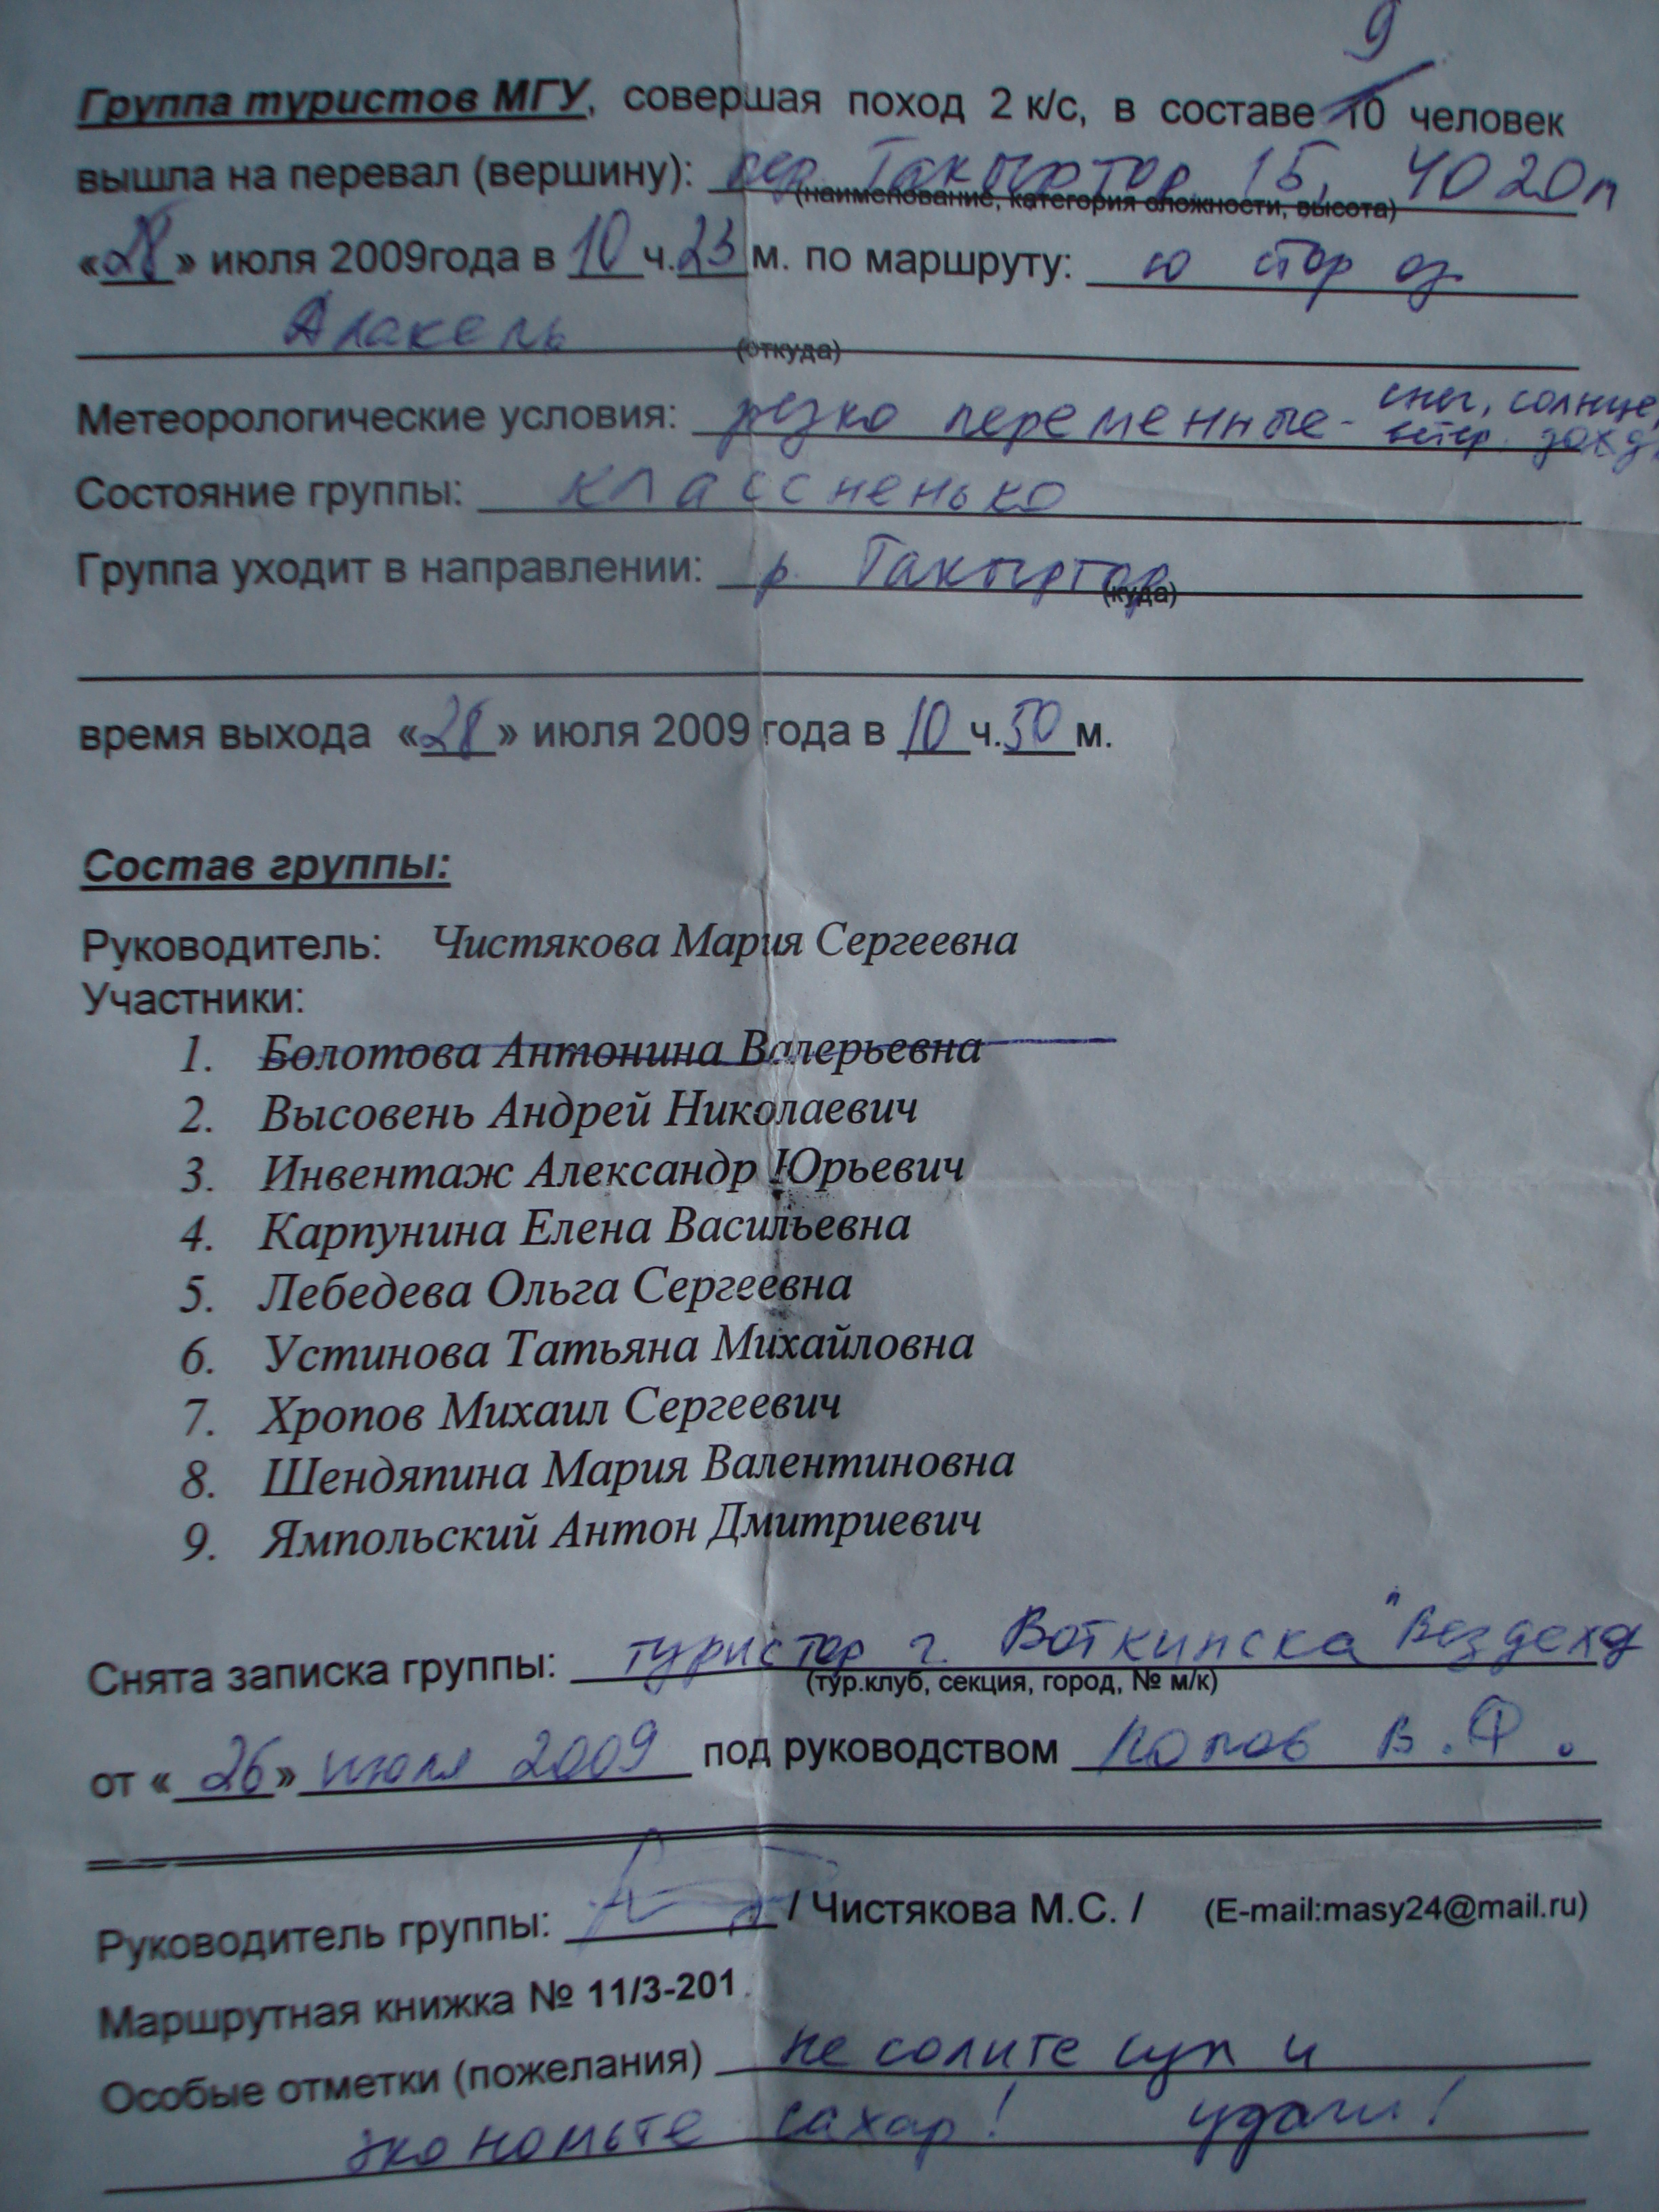 9
Группа туристов МГУ, совершая поход 2 к/с, в составе 10 человек
вышла на перевал (вершину): пер. Такыртор 1Б, 4020м
(наименование, категория сложности, высота)
«28» июля 2009года в 10 ч.23 м. по маршруту: ю стор оз
Алакель
(откуда)
Метеорологические условия: резко переменные - снег, солнце,
ветер, дождь
Состояние группы: классненько
Группа уходит в направлении: р. Такыртор
(куда)
время выхода «28» июля 2009 года в 10 ч.50 м.
Состав группы:
Руководитель: Чистякова Мария Сергеевна
Участники:
1. Болотова Антонина Валерьевна
2. Высовень Андрей Николаевич
3. Инвентаж Александр Юрьевич
4. Карпунина Елена Васильевна
5. Лебедева Ольга Сергеевна
6. Устинова Татьяна Михайловна
7. Хропов Михаил Сергеевич
8. Шендяпина Мария Валентиновна
9. Ямпольский Антон Дмитриевич
Снята записка группы: туристор г. Воткинска "Вездеход
(тур.клуб, секция, город, № м/к)
от «26» июля 2009 под руководством Попов В.Ф.
Руководитель группы: / Чистякова М.С. / (E-mail:masy24@mail.ru)
Маршрутная книжка № 11/3-201
Особые отметки (пожелания) не солите суп и
экономьте сахар! удачи!